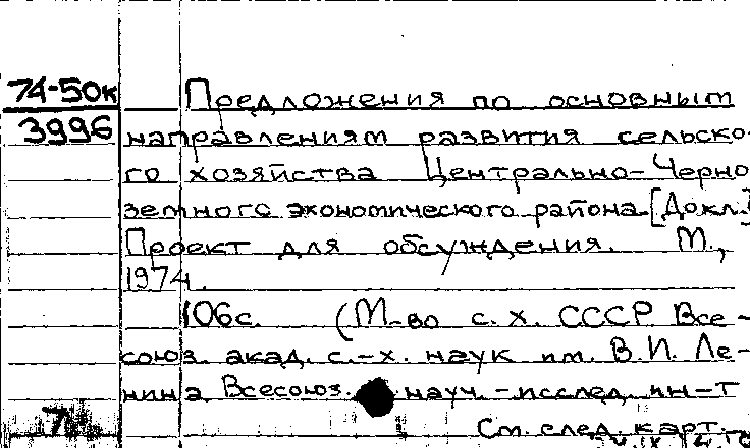 74-50к
3996
Предложения по основным
направлениям развития сельско-
го хозяйства Центрально-Черно
земного экономического района. [Докл.]
Проект для обсуждения. М.,
1974.
106с. (М-во с. х. СССР. Все-
союз. акад. с.-х. наук им. В.И. Ле-
нина. Всесоюз. науч.-исслед. ин-т
См. след. карт.